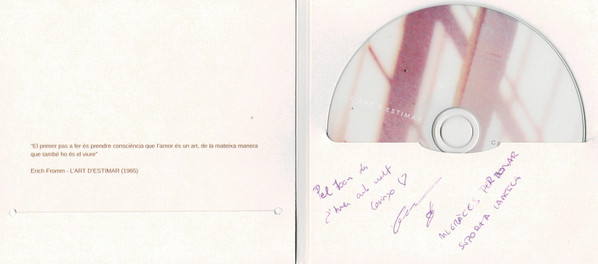 "El primer pas a fer és prendre consciència que l'amor és un art, de la mateixa manera
que també ho és el viure"
Erich Fromm - L'ART D'ESTIMAR (1965)
L'ART D'ESTIMAR
Pel Joan
amb molt
MIL GRÀCIES PER DONAR
SUPORT A